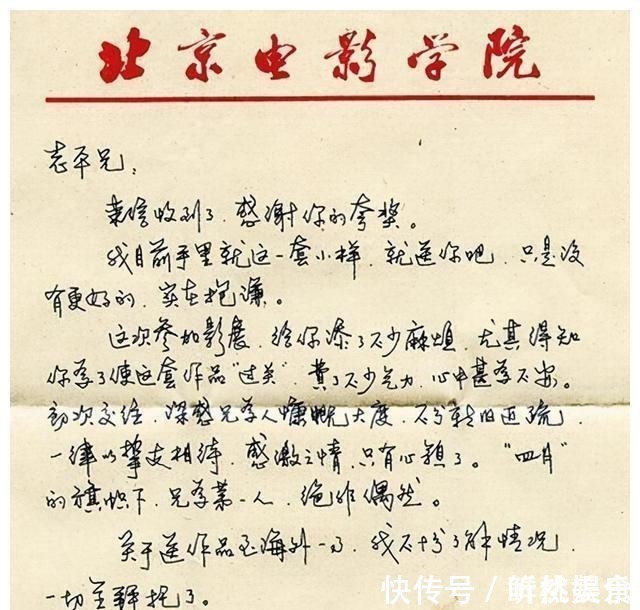 北京电影学院
志平兄:
来信收到了、感谢你的夸奖。
我目前手里就这一套小样,就送你吧,只是没
有更好的,实在抱谦。
这次参加影展,给你添了不少麻烦,尤其得知
你为了使这套作品"过关",费了不少气力,心中甚为不安。
初次交往,深感兄为人慷慨大度,不分新旧近疏,
一律以挚友相待,感激之情,只有心领了。"四月"
的旗帜下,兄为第一人,绝非偶然。
关于送作品至海外一事,我不十分了解情况,
一切全拜托了。
快传号/